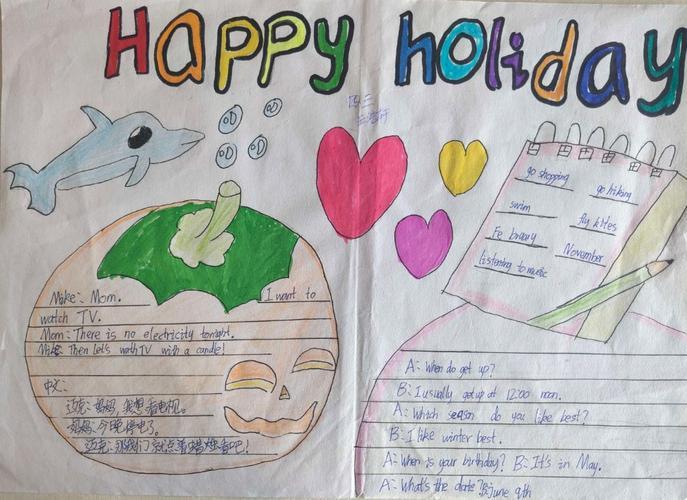 Happy holiday
四三
go shopping
go hiking
swim
fly kites
Fe bruary
November
listening to music
Mike: Mom. I want to
watch TV.
Mom: There is no electricity tonight.
Mike: Then Let's wathTV with a candle!
中文:
迈克:妈妈,我想看电视。
妈妈:今晚停电了。
迈克:那我们就点着蜡烛看吧!
A: When do get up?
B: I usually get up at 12:00 noon.
A: Which season do you like best?
B: I like winter best.
A: When is your birthday? B: It's in May.
A: What's the date? B: June 9th